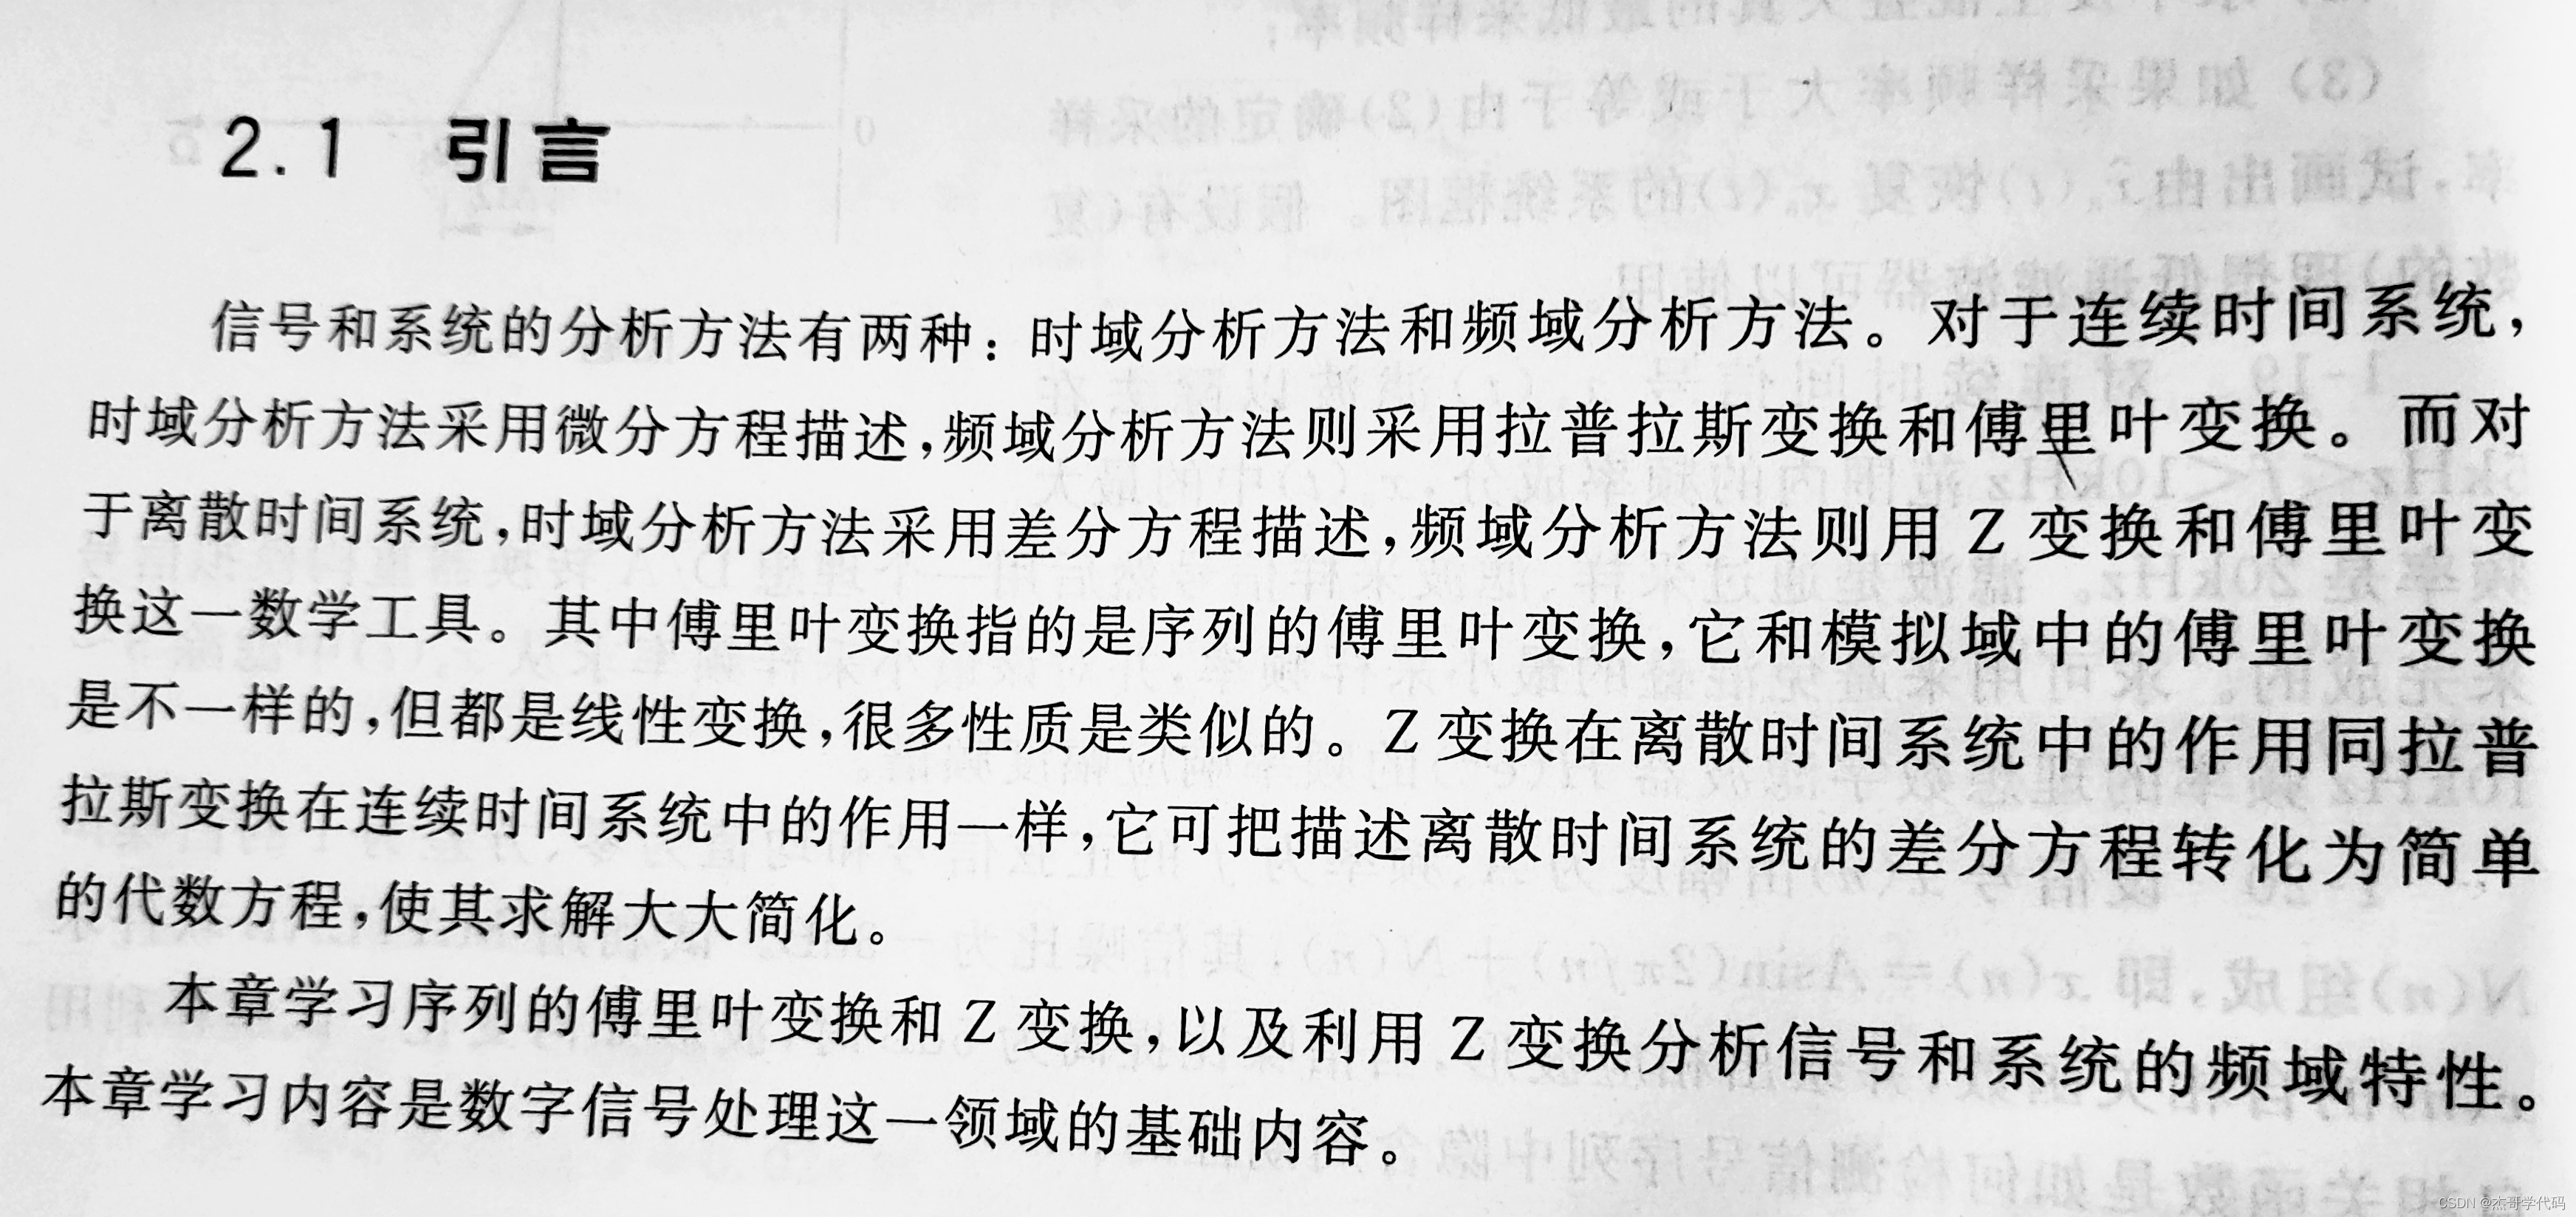 2.1 引言
信号和系统的分析方法有两种：时域分析方法和频域分析方法。对于连续时间系统，
时域分析方法采用微分方程描述，频域分析方法则采用拉普拉斯变换和傅里叶变换。而对
于离散时间系统，时域分析方法采用差分方程描述，频域分析方法则用 Z 变换和傅里叶变
换这一数学工具。其中傅里叶变换指的是序列的傅里叶变换，它和模拟域中的傅里叶变换
是不一样的，但都是线性变换，很多性质是类似的。Z 变换在离散时间系统中的作用同拉普
拉斯变换在连续时间系统中的作用一样，它可把描述离散时间系统的差分方程转化为简单
的代数方程，使其求解大大简化。
本章学习序列的傅里叶变换和 Z 变换，以及利用 Z 变换分析信号和系统的频域特性。
本章学习内容是数字信号处理这一领域的基础内容。
CSDN @杰哥学代码